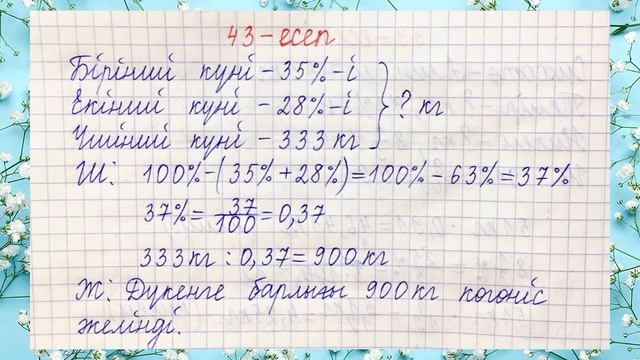 43-есеп
Бірінші күні - 35%-і
Екінші күні - 28%-і } ? кг
Үшінші күні - 333 кг
Ш: 100%-(35%+28%)=100%-63%=37%
37%= 37/100 =0,37
333кг : 0,37= 900 кг
Ж: Дүкенге барлығы 900кг көкөніс
әкелінді.